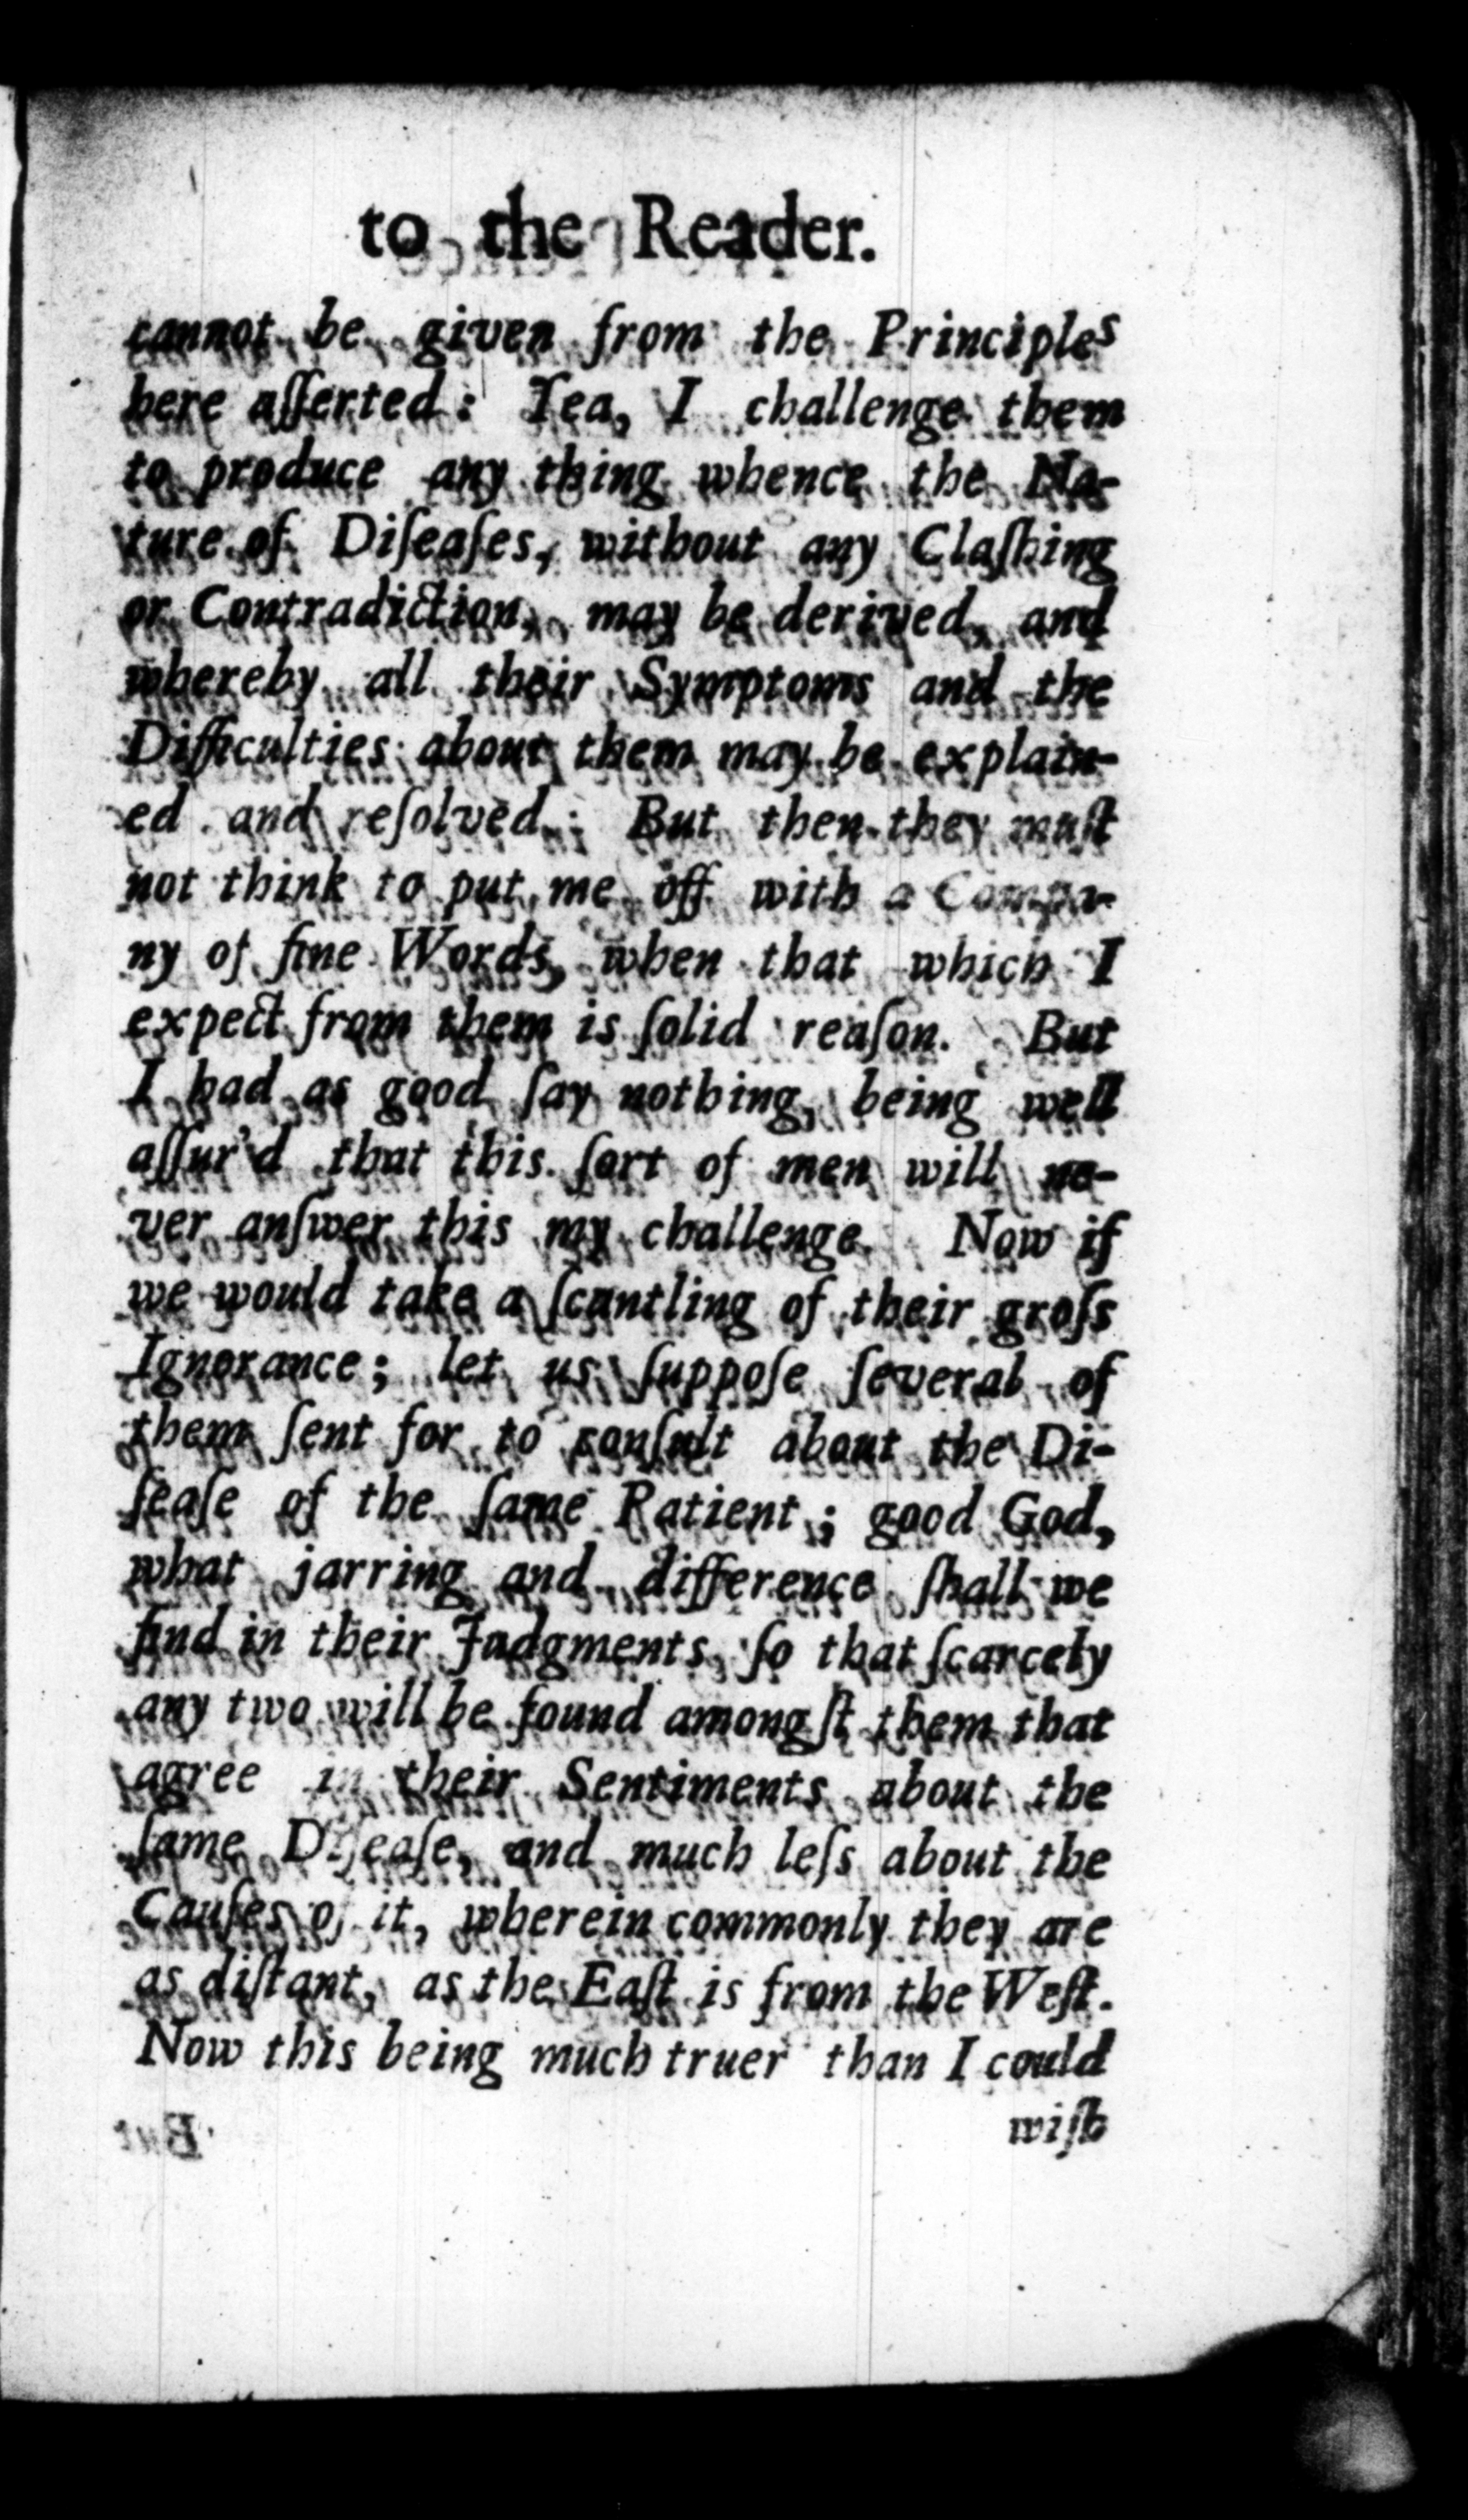 to the Reader.
cannot be given from the Principles
here aſſerted: Yea, I challenge them
to produce any thing whence the Na-
ture of Diſeaſes, without any Claſhing
or Contradiction, may be derived, and
whereby all their Symptoms and the
Difficulties about them may be explain-
ed and reſolved: But then they muſt
not think to put me off with a Compa-
ny of fine Words, when that which I
expect from them is ſolid reaſon. But
I had as good ſay nothing, being well
aſſur'd that this ſort of men will ne-
ver anſwer this my challenge. Now if
we would take a ſcantling of their groſs
Ignorance; let us ſuppoſe ſeveral of
them ſent for to conſult about the Di-
ſeaſe of the ſame Patient; good God,
what jarring and difference ſhall we
find in their Judgments, ſo that ſcarcely
any two will be found amongſt them that
agree in their Sentiments about the
ſame Diſeaſe, and much leſs about the
Cauſes of it, wherein commonly they are
as diſtant, as the Eaſt is from the Weſt.
Now this being much truer than I could
wiſh